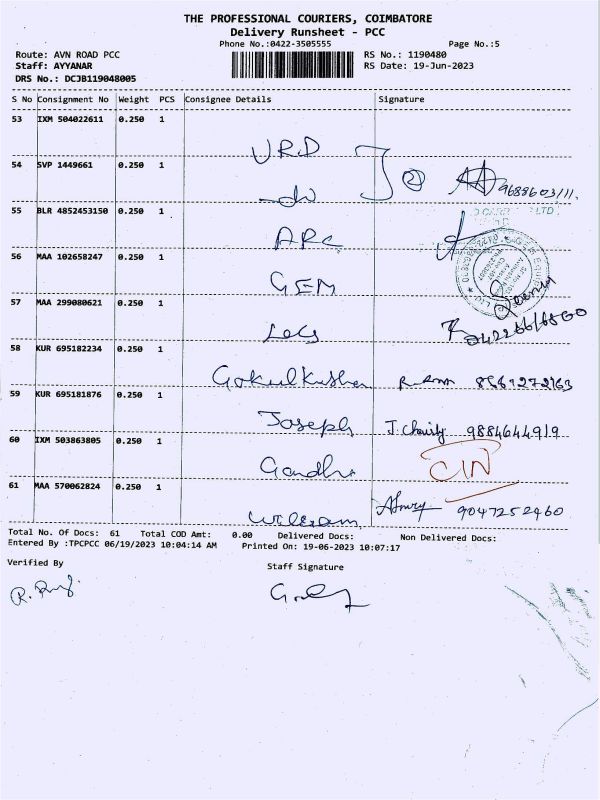 THE PROFESSIONAL COURIERS, COIMBATORE
Delivery Runsheet - PCC
Phone No.:0422-3505555 Page No.:5
Route: AVN ROAD PCC RS No.: 1190480
Staff: AYYANAR RS Date: 19-Jun-2023
DRS No.: DCJB119048005
S No Consignment No Weight PCS Consignee Details Signature
53 IXM 504022611 0.250 1
URD
54 SVP 1449661 0.250 1
do
55 BLR 4852453150 0.250 1
ARC
56 MAA 102658247 0.250 1
GEM
57 MAA 299080621 0.250 1
58 KUR 695182234 0.250 1
59 KUR 695181876 0.250 1
Joseph 9884644919
60 IXM 503863805 0.250 1
Gandhi
61 MAA 570062824 0.250 1
9047252960
Total No. Of Docs: 61 Total COD Amt: 0.00 Delivered Docs: Non Delivered Docs:
Entered By :TPCPCC 06/19/2023 10:04:14 AM Printed On: 19-06-2023 10:07:17
Verified By
Staff Signature